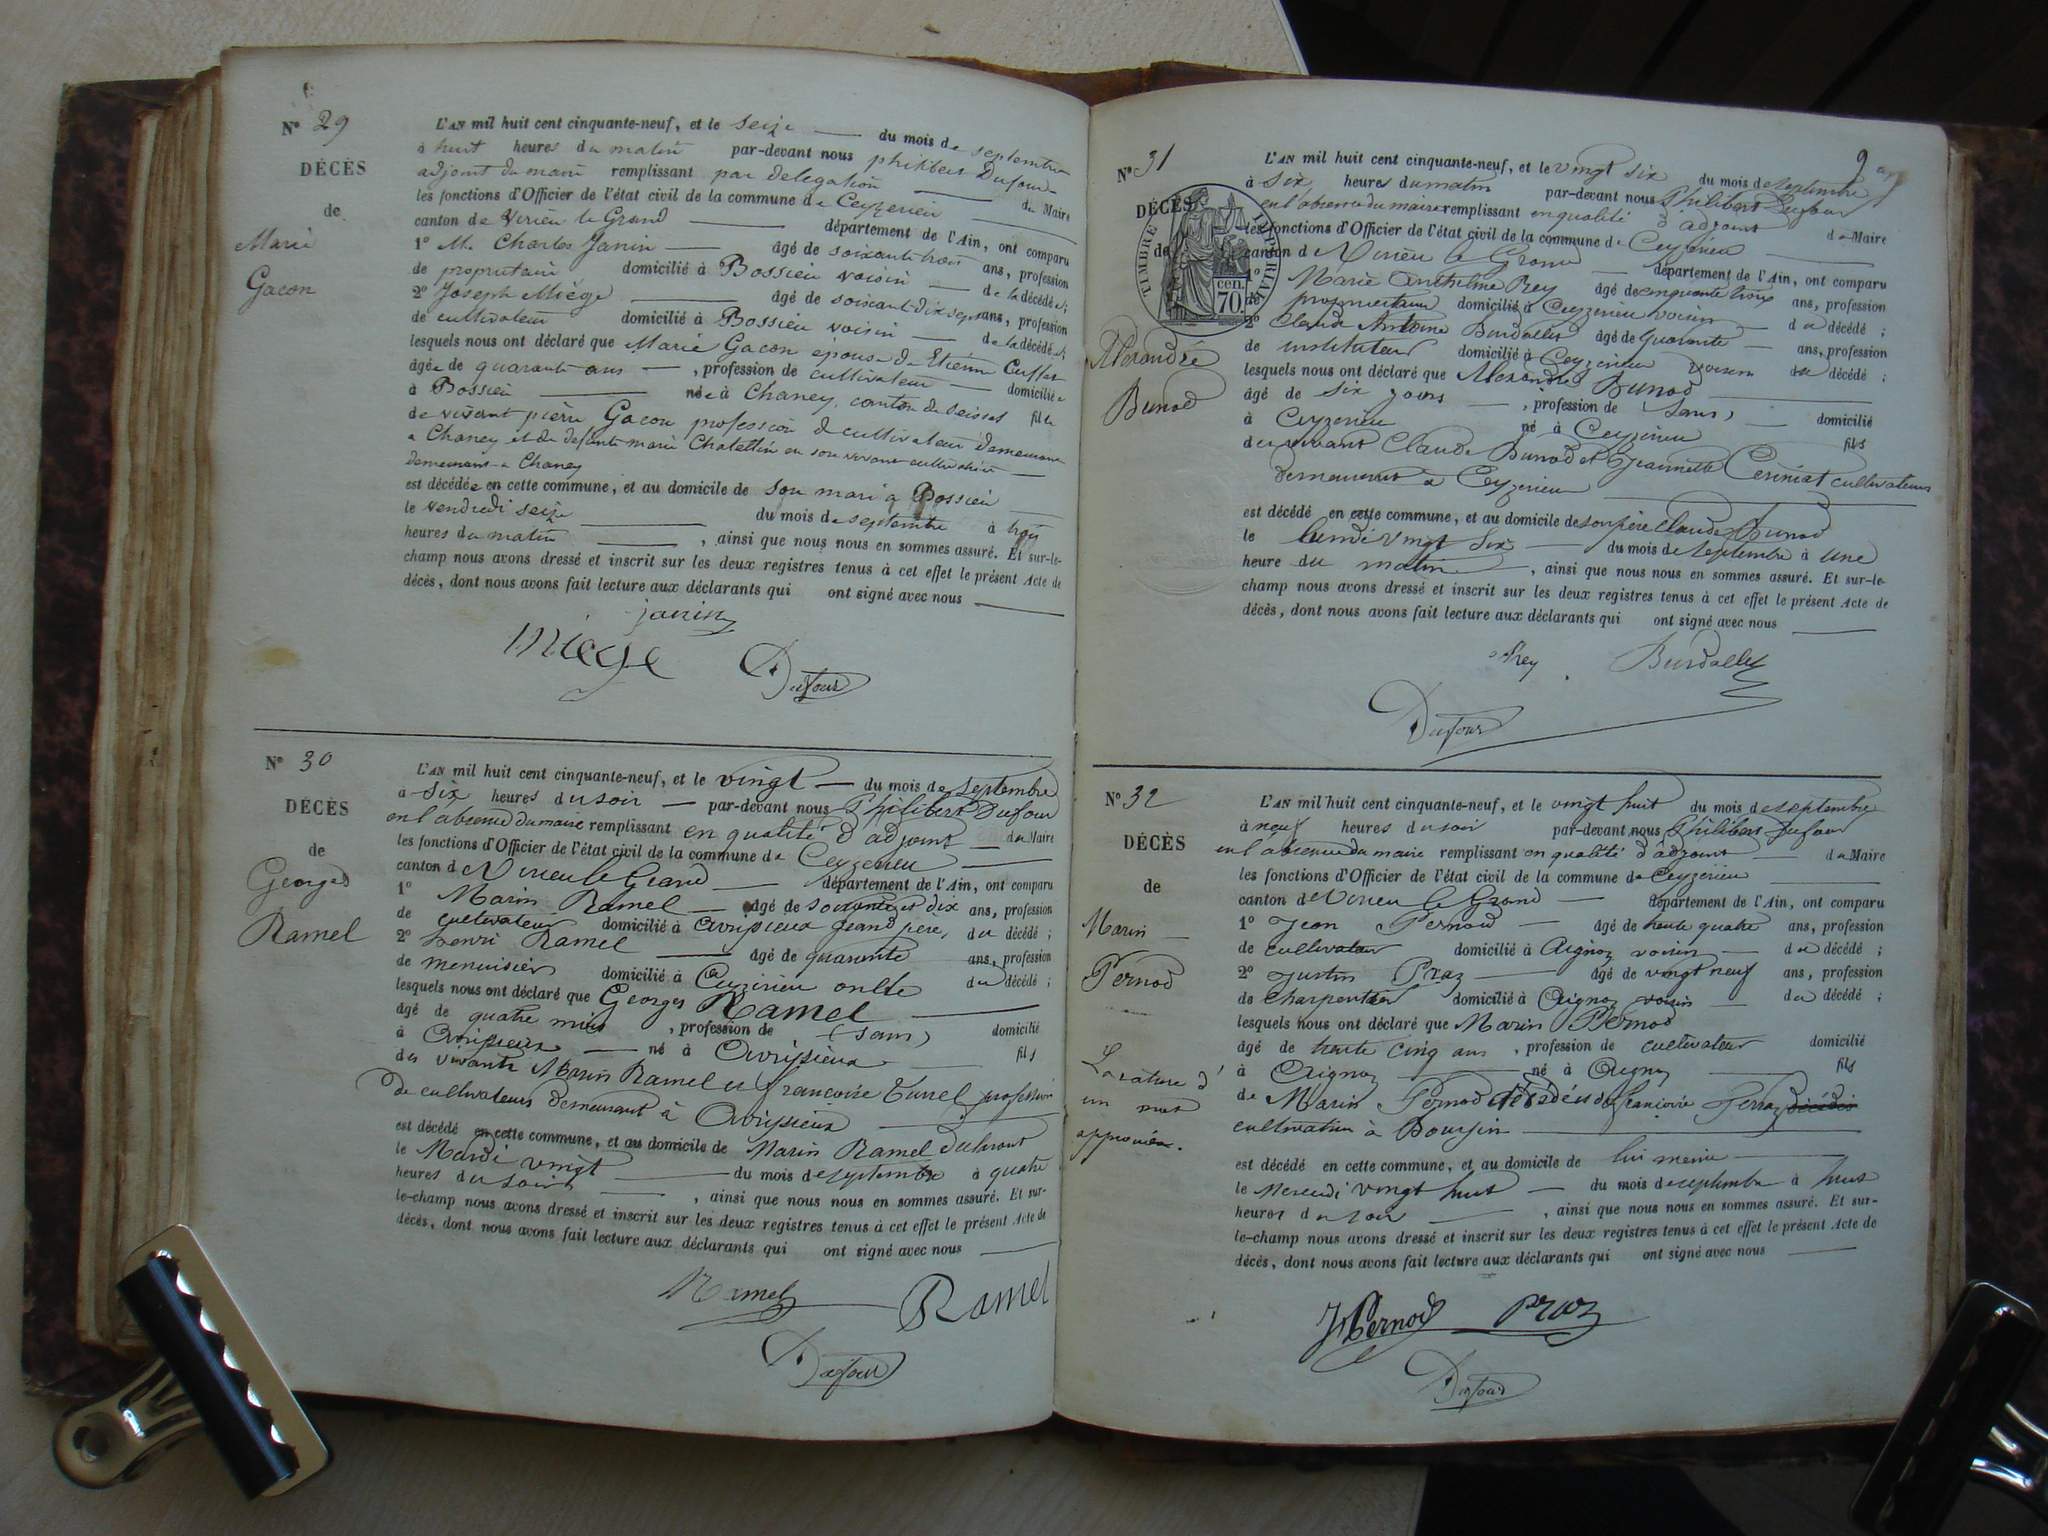 N° 29
DÉCÈS
de
Marie
Gacon
L'AN mil huit cent cinquante-neuf, et le seize du mois de septembre
à huit heures du matin par-devant nous philibert Dufour
adjoint du maire remplissant par delegation du Maire
les fonctions d'Officier de l'état civil de la commune de Ceyzerieu
canton de Virieu le Grand département de l'Ain, ont comparu
1° Mr Charles Janin âgé de soixante trois ans, profession
de proprietaire domicilié à Bossieu voisin de la décédée;
2° Joseph Miége âgé de soixante dix sept ans, profession
de cultivateur domicilié à Bossieu voisin de la décédée;
lesquels nous ont déclaré que Marie Gacon épouse de Etienne Cuffet
âgée de quarante ans, profession de cultivateur domiciliée
à Bossieu née à Chaney, canton de seissel fille
de vivant pierre Gacon profession de cultivateur demeurant
a Chaney et de defunte marie Chatettin en son vivant cultivatrice
demeurant a Chaney
est décédée en cette commune, et au domicile de son mari a Bossieu
le vendredi seize du mois de septembre à trois
heures du matin, ainsi que nous nous en sommes assuré. Et sur-le-
champ nous avons dressé et inscrit sur les deux registres tenus à cet effet le présent Acte de
décès, dont nous avons fait lecture aux déclarants qui ont signé avec nous
janin
Miége Dufour
N° 30
DÉCÈS
de
Georges
Ramel
L'AN mil huit cent cinquante-neuf, et le vingt du mois de septembre
à six heures du soir par-devant nous Philibert Dufour
en l'absence du maire remplissant en qualité d'adjoint du Maire
les fonctions d'Officier de l'état civil de la commune de Ceyzerieu
canton de Virieu le Grand département de l'Ain, ont comparu
1° Marin Ramel âgé de soixante et dix ans, profession
de cultivateur domicilié à Avrissieux grand père, du décédé;
2° henri Ramel âgé de quarante ans, profession
de menuisier domicilié à Ceyzerieu oncle du décédé;
lesquels nous ont déclaré que Georges Ramel
âgé de quatre mois, profession de (sans) domicilié
à Avrissieux né à Avrissieux fils
des vivants Marin Ramel et francoise Turrel profession
de cultivateurs demeurant à Avrissieux
est décédé en cette commune, et au domicile de Marin Ramel déclarant
le Mardi vingt du mois de septembre à quatre
heures du soir, ainsi que nous nous en sommes assuré. Et sur-
le-champ nous avons dressé et inscrit sur les deux registres tenus à cet effet le présent Acte de
décès, dont nous avons fait lecture aux déclarants qui ont signé avec nous
Ramel Ramel
Dufour
9
N° 31
DÉCÈS
de
TIMBRE IMPÉRIAL
70 cen.
Alexandre
Bunod
L'AN mil huit cent cinquante-neuf, et le vingt six du mois de septembre
à six heures du matin par-devant nous Philibert Dufour
en l'absence du maire remplissant en qualité d'adjoint du Maire
les fonctions d'Officier de l'état civil de la commune de Ceyzerieu
canton de Virieu le Grand département de l'Ain, ont comparu
1° Marie Anthelme Rey âgé de cinquante trois ans, profession
de proprietaire domicilié à Ceyzerieu voisin du décédé;
2° Claude Antoine Burdallet âgé de quarante ans, profession
de instituteur domicilié à Ceyzerieu voisin du décédé;
lesquels nous ont déclaré que Alexandre Bunod
âgé de six jours, profession de (sans) domicilié
à Ceyzerieu né à Ceyzerieu fils
des vivant Claude Bunod et Jeannette Ceriniat cultivateurs
demeurant à Ceyzerieu
est décédé en cette commune, et au domicile de son père Claude Bunod
le lundi vingt six du mois de septembre à une
heure du matin, ainsi que nous nous en sommes assuré. Et sur-le-
champ nous avons dressé et inscrit sur les deux registres tenus à cet effet le présent Acte de
décès, dont nous avons fait lecture aux déclarants qui ont signé avec nous
Rey Burdallet
Dufour
N° 32
DÉCÈS
de
Marin
Pernod
La rature d'
un mot
approuvée.
L'AN mil huit cent cinquante-neuf, et le vingt huit du mois de septembre
à neuf heures du soir par-devant nous Philibert Dufour
en l'absence du maire remplissant en qualité d'adjoint du Maire
les fonctions d'Officier de l'état civil de la commune de Ceyzerieu
canton de Virieu le Grand département de l'Ain, ont comparu
1° Jean Pernod âgé de trente quatre ans, profession
de cultivateur domicilié à Aignoz voisin du décédé;
2° Justin Praz âgé de vingt neuf ans, profession
de charpentier domicilié à Aignoz voisin du décédé;
lesquels nous ont déclaré que Marin Pernod
âgé de trente cinq ans, profession de cultivateur domicilié
à Aignoz né à Aignoz fils
de Marin Pernod décédé et de françoise Perraz décédés
cultivatrice à Boursin
est décédé en cette commune, et au domicile de lui meme
le Mercredi vingt huit du mois de septembre à huit
heures du soir, ainsi que nous nous en sommes assuré. Et sur-
le-champ nous avons dressé et inscrit sur les deux registres tenus à cet effet le présent Acte de
décès, dont nous avons fait lecture aux déclarants qui ont signé avec nous
JPernod Praz
Dufour